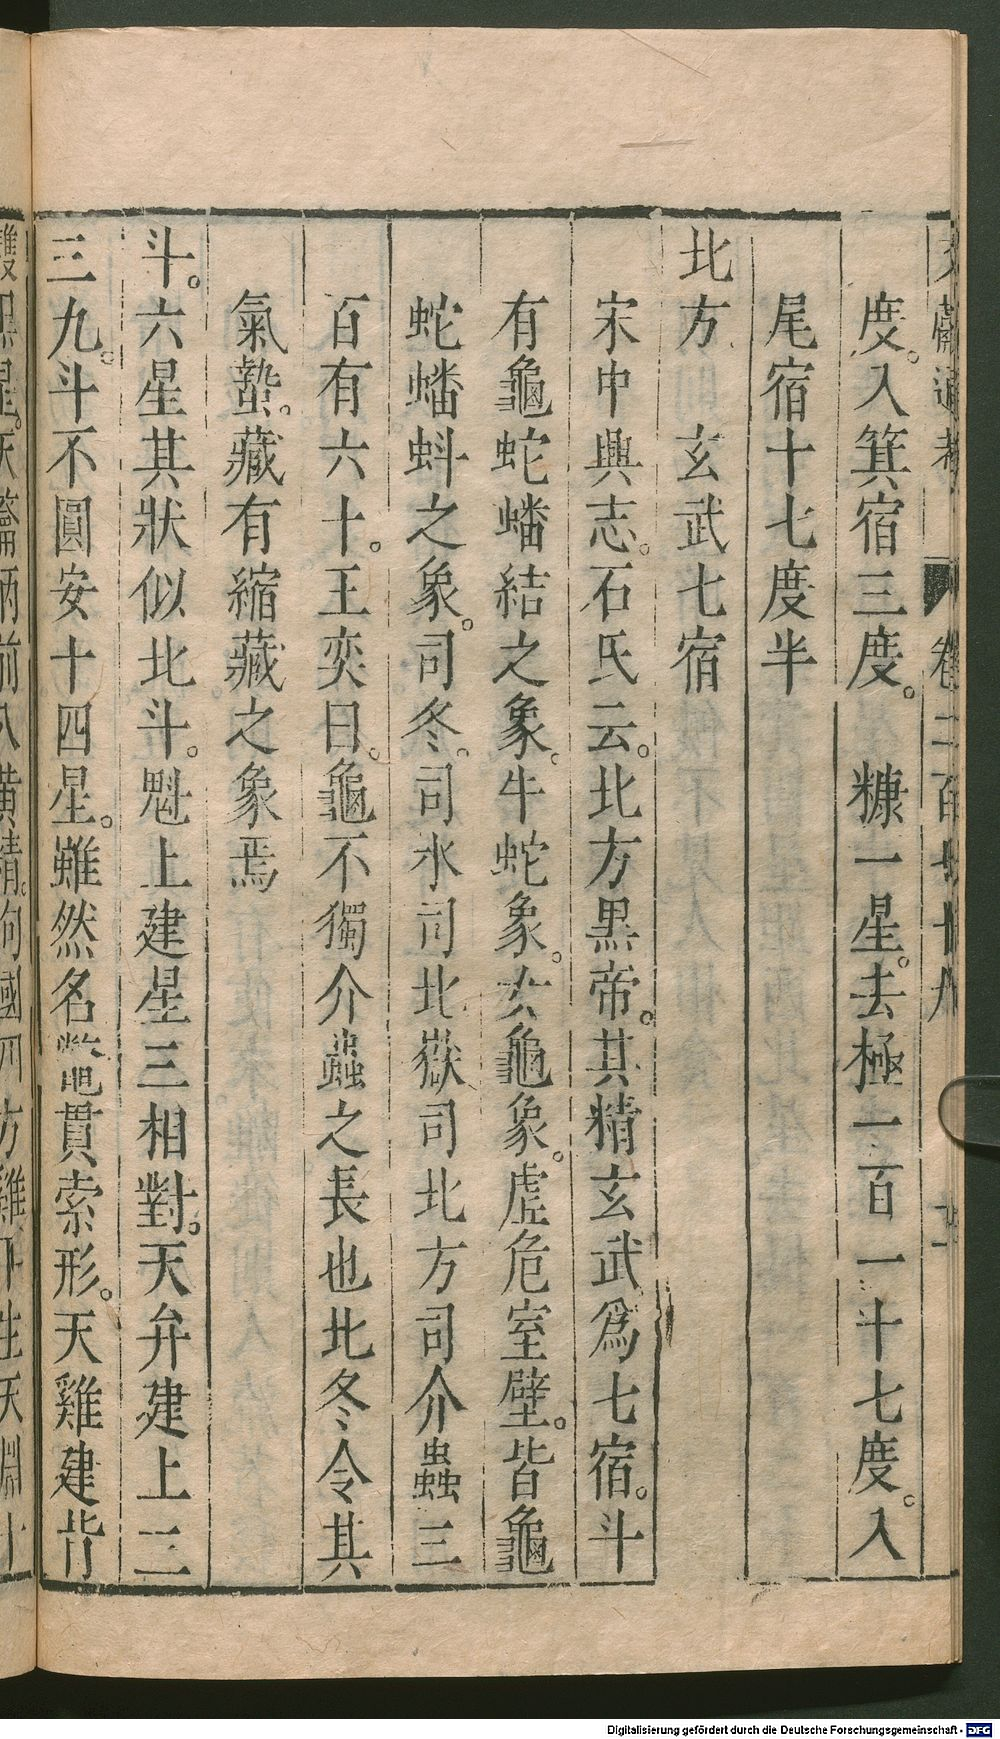 文獻通考 卷二百七十九
度。入箕宿三度。 糠一星。去極一百一十七度。入
尾宿十七度半
北方 玄武七宿
宋中興志。石氏云。北方黑帝。其精玄武爲七宿。斗
有龜蛇蟠結之象。牛蛇象。女龜象。虛危室壁。皆龜
蛇蟠蚪之象。司冬。司水司北嶽司北方司介蟲三
百有六十。王奕曰。龜不獨介蟲之長也北冬令其
氣蟄。藏有縮藏之象焉
斗。六星其狀似北斗。魁上建星三相對。天弁建上三
三九。斗不圓安十四星。雖然名鼈貫索形。天雞建背
雙黑星。天籥柄前八黃精。狗國四方雞下生天淵十
Digitalisierung gefördert durch die Deutsche Forschungsgemeinschaft - DFG